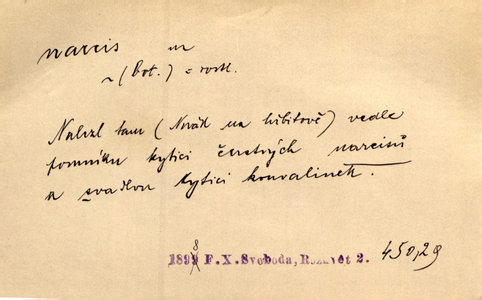 narcis m
~ (bot.) = rostl.
Nalezl tam (Novák na hřbitově) vedle
pomníku kytici čerstvých narcisů
a svadlou kytici konvalinek.
1898 F. X. Svoboda, Rozkvět 2. 450,29